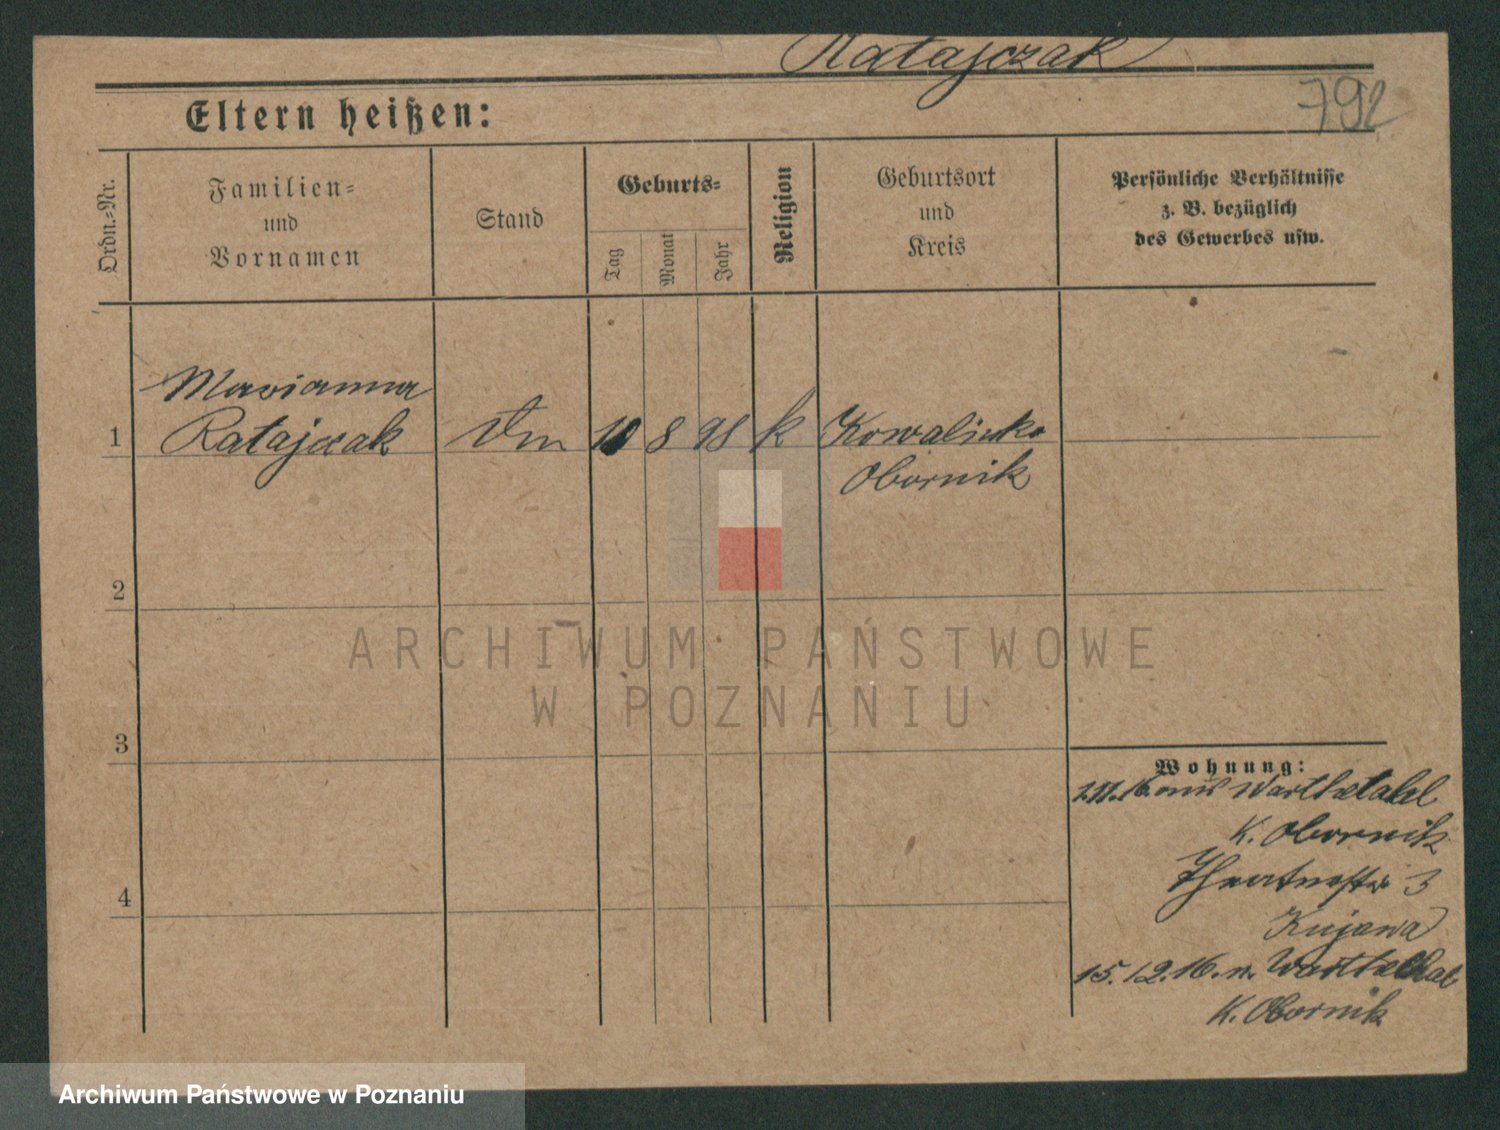 Ratajczak
792
Eltern heißen:
Ordn.=Nr.
Familien=
und
Vornamen
Stand
Geburts=
Tag
Monat
Jahr
Religion
Geburtsort
und
Kreis
Persönliche Verhältnisse
z. B. bezüglich
des Gewerbes usw.
1
Marianna
Ratajczak
10
8
98
k
Kowalewko
Obornik
2
3
4
ARCHIWUM PAŃSTWOWE
W POZNANIU
Wohnung:
16. aus Warthetahl
K. Obornik
3
Kujawa
15.12.16. n. Warthethal
K. Obornik
Archiwum Państwowe w Poznaniu